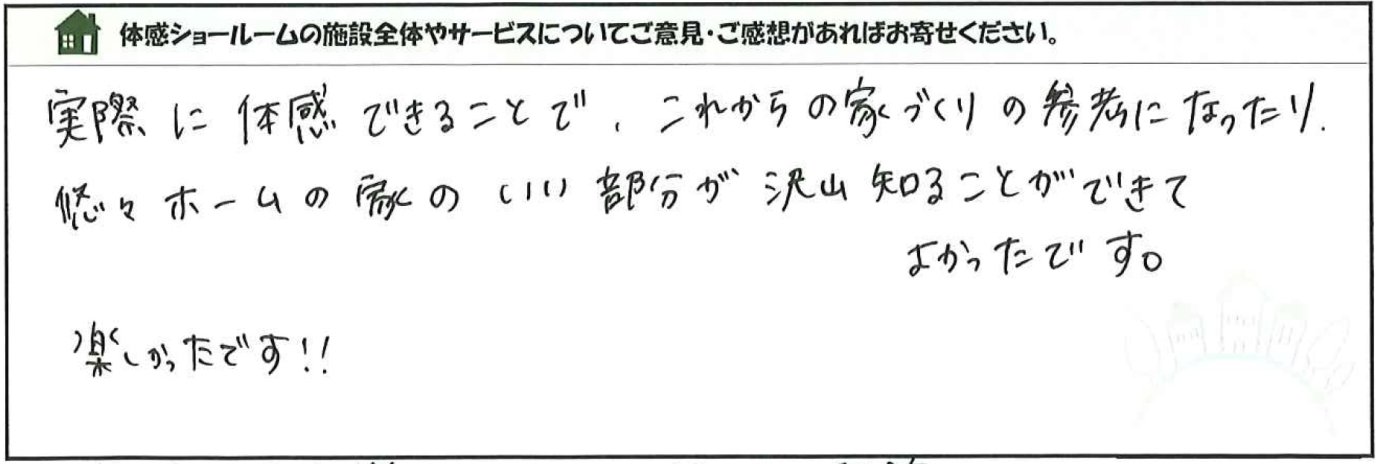 体感ショールームの施設全体やサービスについてご意見・ご感想があればお寄せください。
実際に体感できることで、これからの家づくりの参考になったり、
悠々ホームの家のいい部分が沢山知ることができて
よかったです。
楽しかったです!!